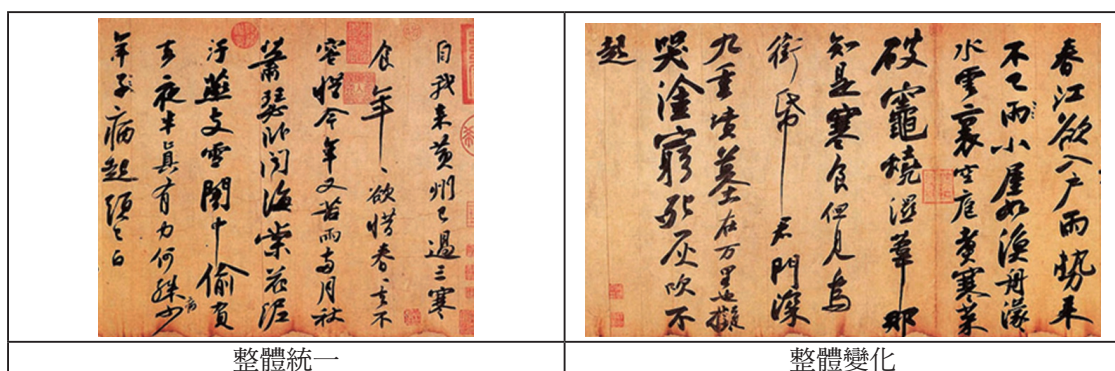 自我来黄州已過三寒
食年〻欲惜春〻去不
容惜今年又苦雨兩月秋
蕭瑟卧聞海棠花泥
汙燕支雪闇中偷負
去夜半真有力何殊少
病
年子病起頭已白
整體統一
春江欲入户雨勢来
不已雨小屋如漁舟濛〻
水雲裏空庖煑寒菜
破竈燒濕葦那
知是寒食但見烏
銜帋君門深
九重墳墓在万里也擬
哭塗窮死灰吹不
起
整體變化